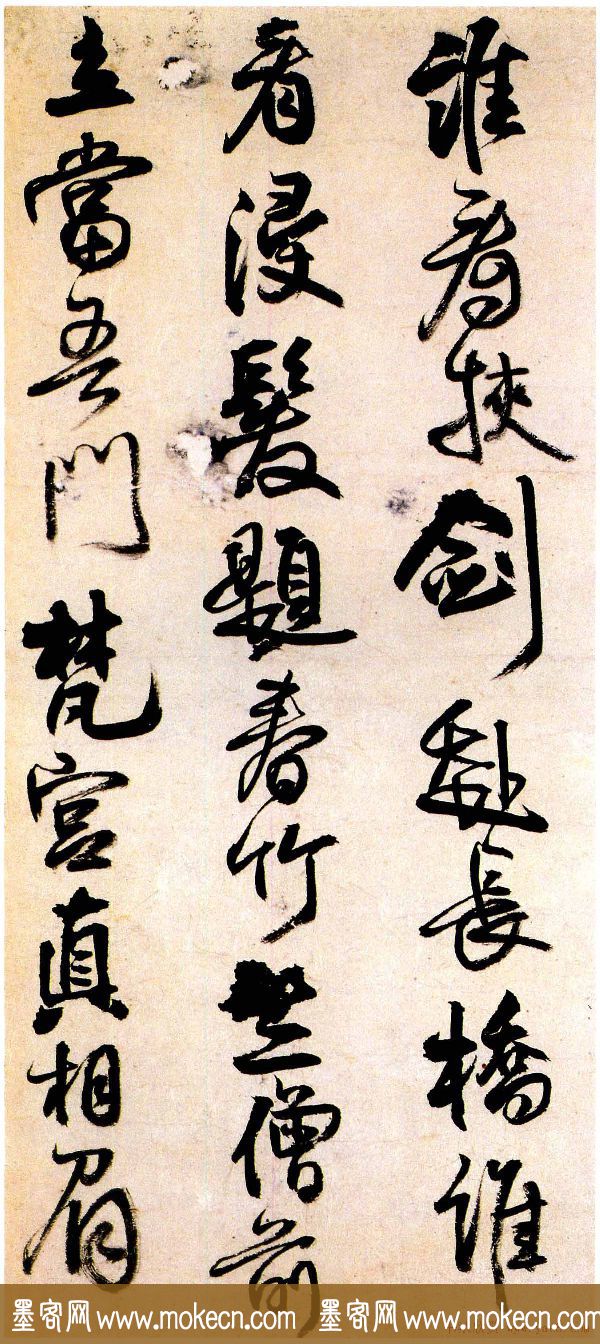 誰看挾劍赴長橋誰
看浸髮題春竹竺僧前
立當吾門梵宮真相眉
墨客网 www.mokecn.com 墨客网 www.mokecn.com